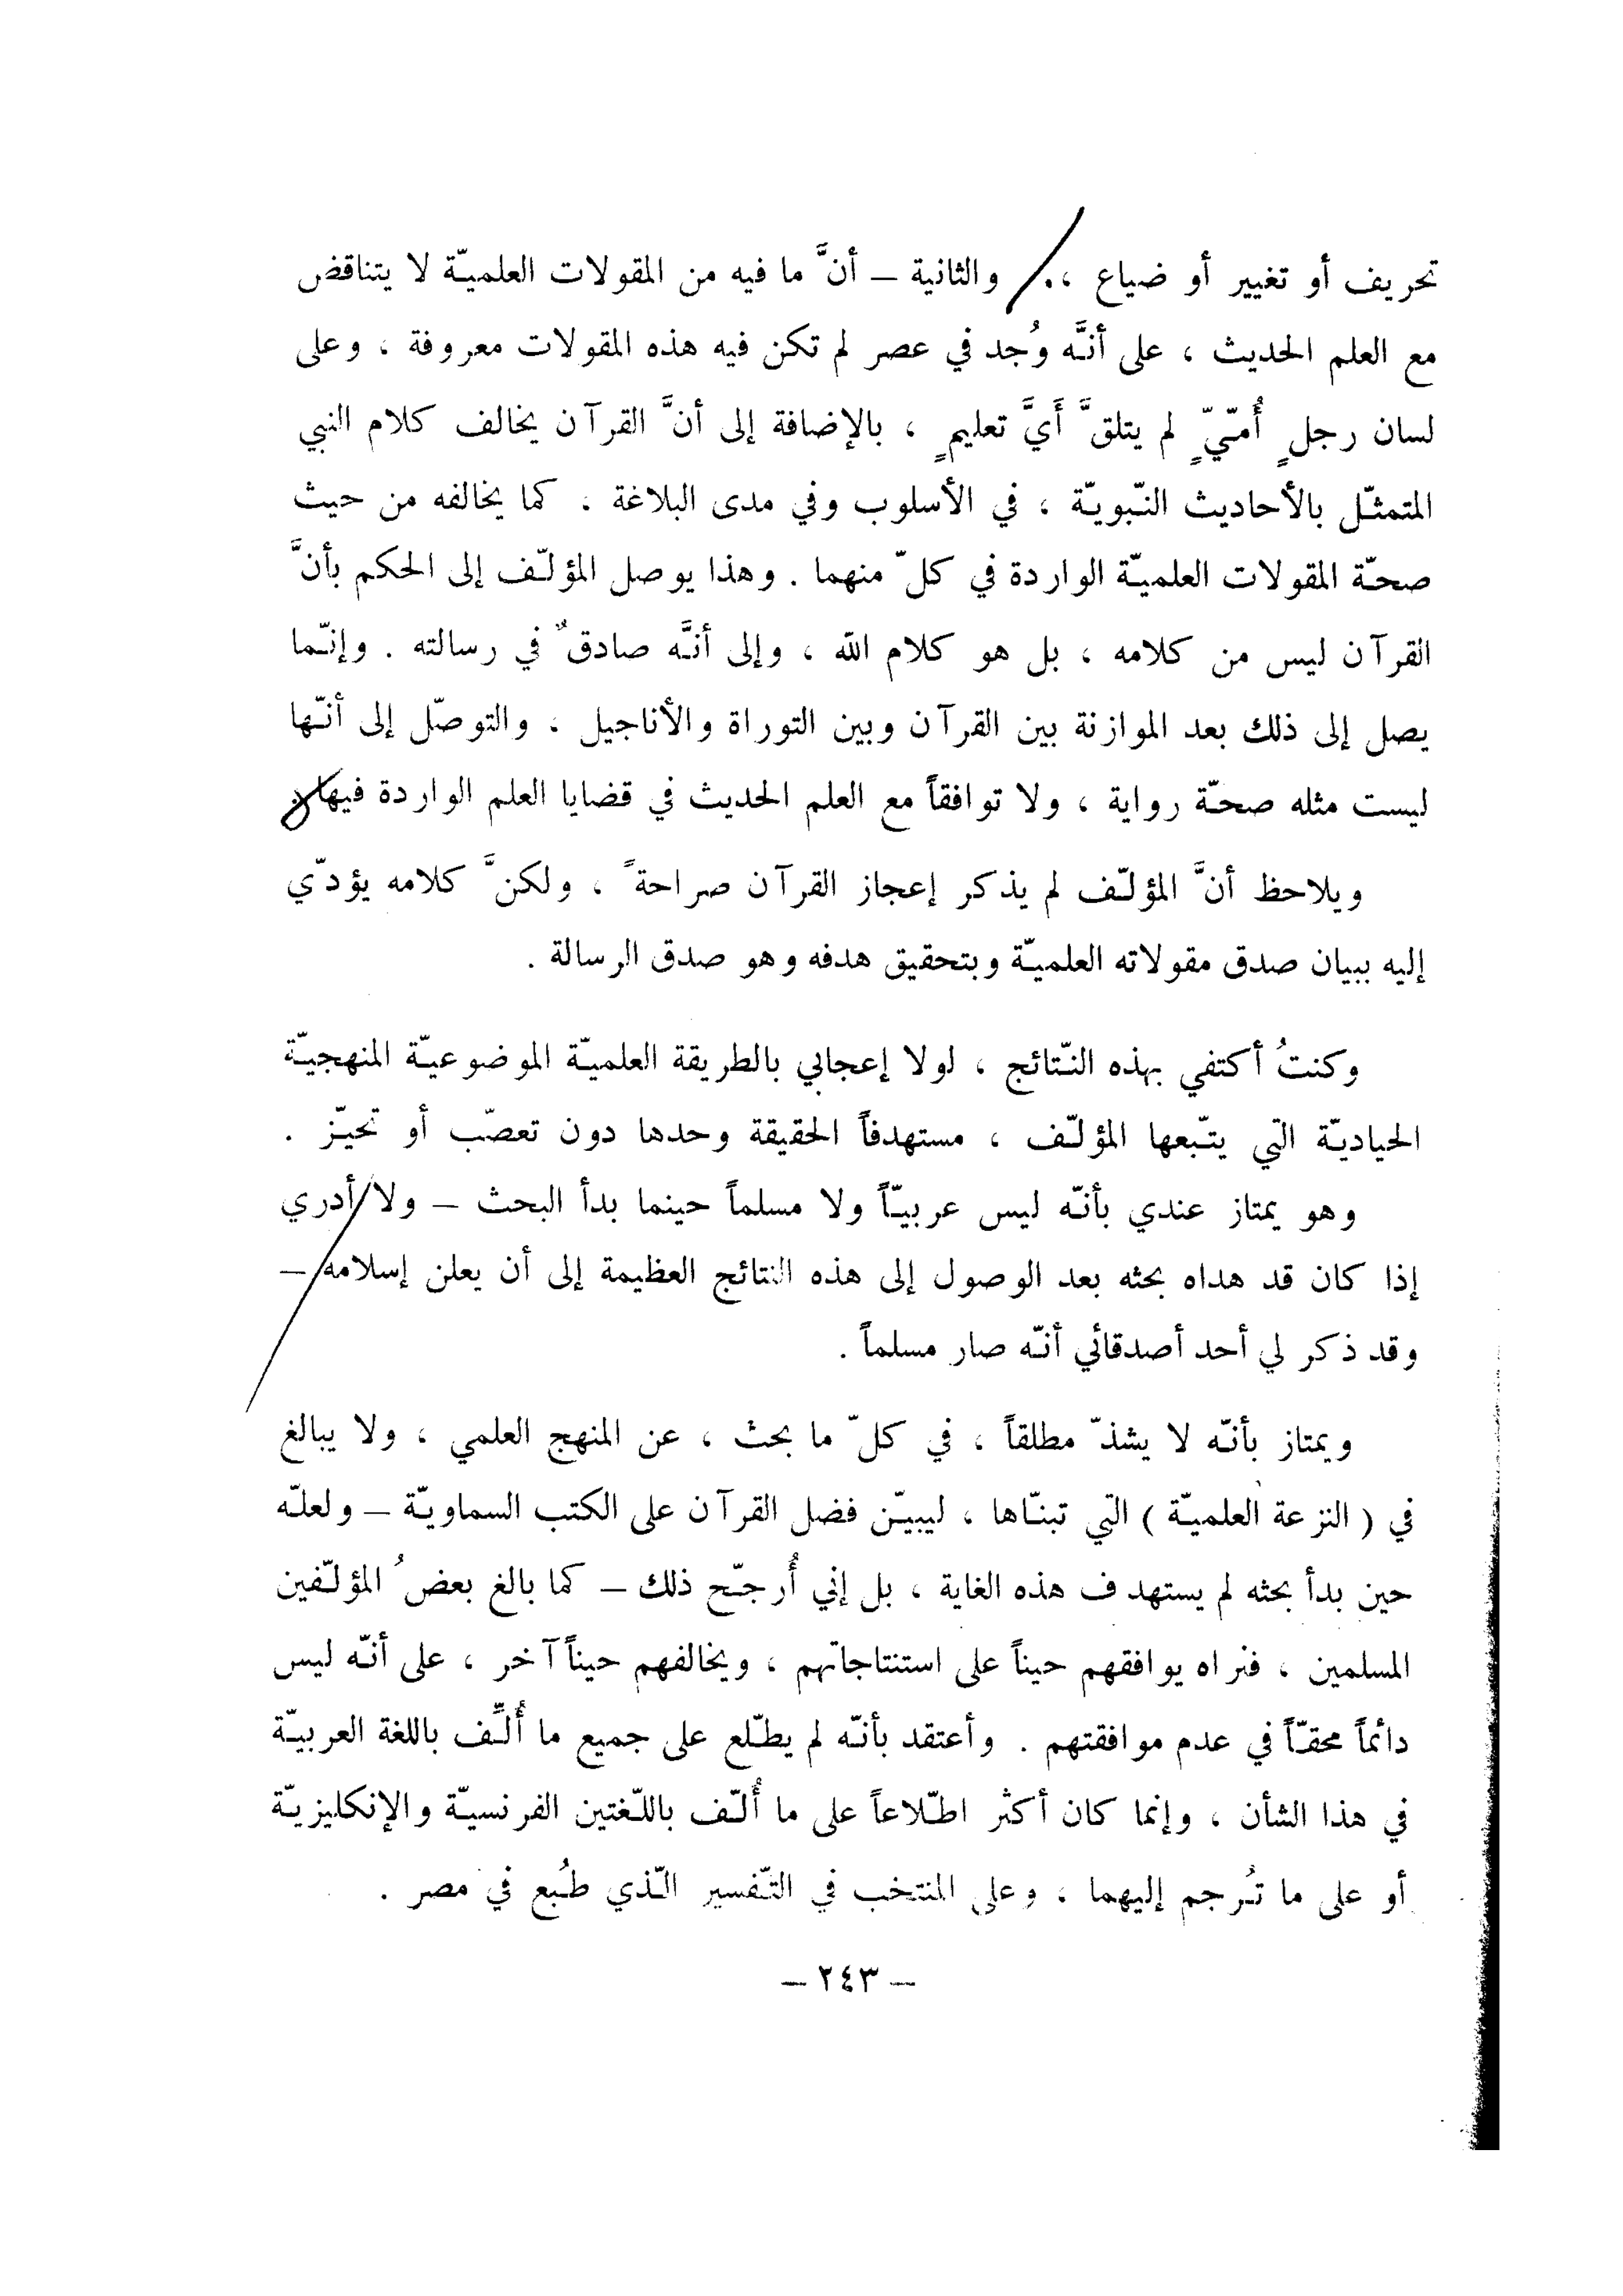 تحريف أو تغيير أو ضياع ، . والثانية – أنَّ ما فيه من المقولات العلميّة لا يتناقض
مع العلم الحديث ، على أنَّه وُجد في عصر لم تكن فيه هذه المقولات معروفة ، وعلى
لسان رجلٍ أُمّيّ ٍ لم يتلقَّ أَيَّ تعليمٍ ، بالإضافة إلى أنَّ القرآن يخالف كلام النبي
المتمثّل بالأحاديث النّبويّة ، في الأسلوب وفي مدى البلاغة . كما يخالفه من حيث
صحّة المقولات العلميّة الواردة في كلّ منهما . وهذا يوصل المؤلّف إلى الحكم بأنَّ
القرآن ليس من كلامه ، بل هو كلام الله ، وإلى أنَّه صادقٌ في رسالته . وإنّما
يصل إلى ذلك بعد الموازنة بين القرآن وبين التوراة والأناجيل ، والتوصّل إلى أنّها
ليست مثله صحّة رواية ، ولا توافقاً مع العلم الحديث في قضايا العلم الواردة فيها .
ويلاحظ أنَّ المؤلّف لم يذكر إعجاز القرآن صراحةً ، ولكنَّ كلامه يؤدّي
إليه ببيان صدق مقولاته العلميّة وبتحقيق هدفه وهو صدق الرسالة .
وكنتُ أكتفي بهذه النّتائج ، لولا إعجابي بالطريقة العلميّة الموضوعيّة المنهجيّة
الحياديّة التي يتّبعها المؤلّف ، مستهدفاً الحقيقة وحدها دون تعصّب أو تحيّز .
وهو يمتاز عندي بأنّه ليس عربيّاً ولا مسلماً حينما بدأ البحث – ولا أدري
إذا كان قد هداه بحثه بعد الوصول إلى هذه النتائج العظيمة إلى أن يعلن إسلامه –
وقد ذكر لي أحد أصدقائي أنّه صار مسلماً .
ويمتاز بأنّه لا يشذّ مطلقاً ، في كلّ ما بحث ، عن المنهج العلمي ، ولا يبالغ
في ( النزعة العلميّة ) التي تبنّاها ، ليبيّن فضل القرآن على الكتب السماويّة – ولعلّه
حين بدأ بحثه لم يستهدف هذه الغاية ، بل إني أُرجّح ذلك – كما بالغ بعضُ المؤلّفين
المسلمين ، فنراه يوافقهم حيناً على استنتاجاتهم ، ويخالفهم حيناً آخر ، على أنّه ليس
دائماً محقّاً في عدم موافقتهم . وأعتقد بأنّه لم يطّلع على جميع ما أُلِّف باللغة العربيّة
في هذا الشأن ، وإنما كان أكثر اطّلاعاً على ما أُلّف باللّغتين الفرنسيّة والإنكليزيّة
أو على ما تُرجم إليهما ، وعلى المنتخب في التّفسير الّذي طُبع في مصر .
– ٢٤٣ –